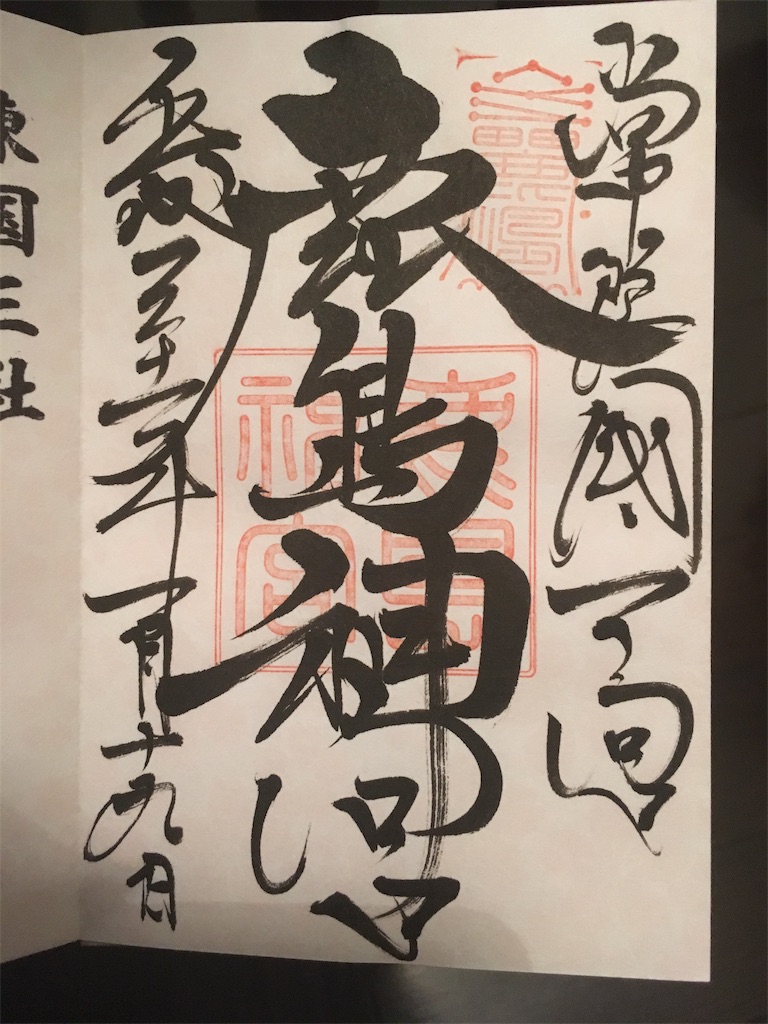 常陸國一之宮
鹿島神宮
平成三十一年一月十九日
鹿島神宮
東国三社